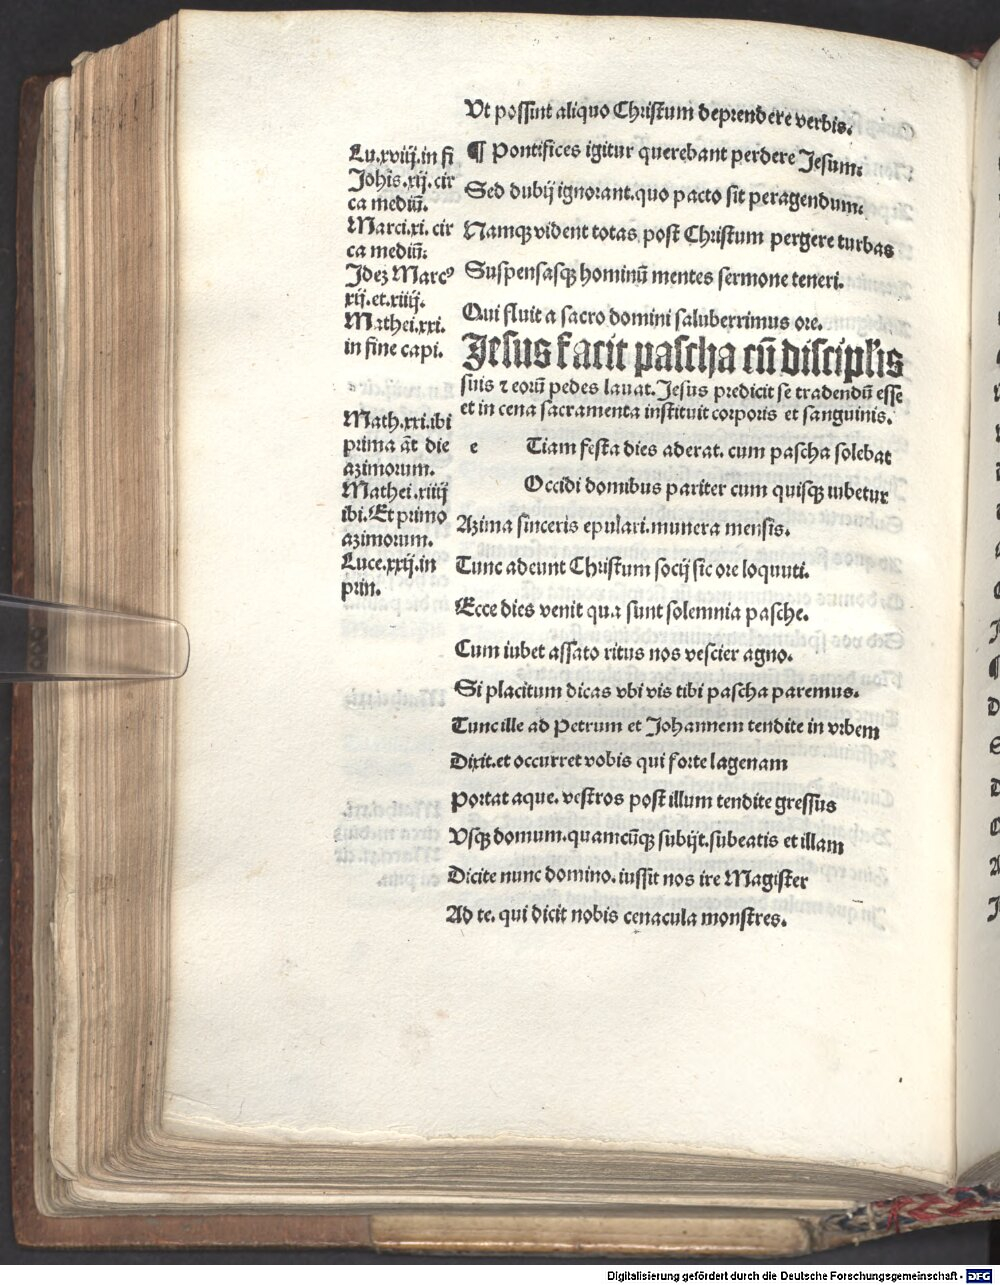 Ut possint aliquo Christum deprendere verbis.
¶ Pontifices igitur querebant perdere Jesum:
Sed dubij ignorant. quo pacto sit peragendum:
Namqꝫ vident totas post Christum pergere turbas
Suspensasqꝫ hominū mentes sermone teneri.
Qui fluit a sacro domini saluberrimus ore.
Lu.xviij.in fi
Johis.xij.cir
ca mediū.
Marci.xi.cir
ca mediū:
Ideꝫ Marcꝰ
xij.et.xiiij.
Mathei.xxi.
in fine capi.
Jesus facit pascha cū disciplis
suis ⁊ eorū pedes lauat. Jesus predicit se tradendū esse
et in cena sacramenta instituit corporis et sanguinis.
Math.xxi.ibi
prima āt die
azimorum.
Mathei.xiiij
ibi. Et primo
azimorum.
Luce.xxij.in
prin.
e Tiam festa dies aderat. cum pascha solebat
Occidi domibus pariter cum quisqꝫ iubetur
Azima sinceris epulari. munera mensis.
Tunc adeunt Christum socij sic ore loquuti.
Ecce dies venit qua sunt solemnia pasche.
Cum iubet assato ritus nos vescier agno.
Si placitum dicas vbi vis tibi pascha paremus.
Tunc ille ad Petrum et Johannem tendite in vrbem
Dixit. et occurret vobis qui forte lagenam
Portat aque. vestros post illum tendite gressus
Vsqꝫ domum. quamcūqꝫ subijt. subeatis et illam
Dicite nunc domino. iussit nos ire Magister
Ad te. qui dicit nobis cenacula monstres.
Digitalisierung gefördert durch die Deutsche Forschungsgemeinschaft - DFG